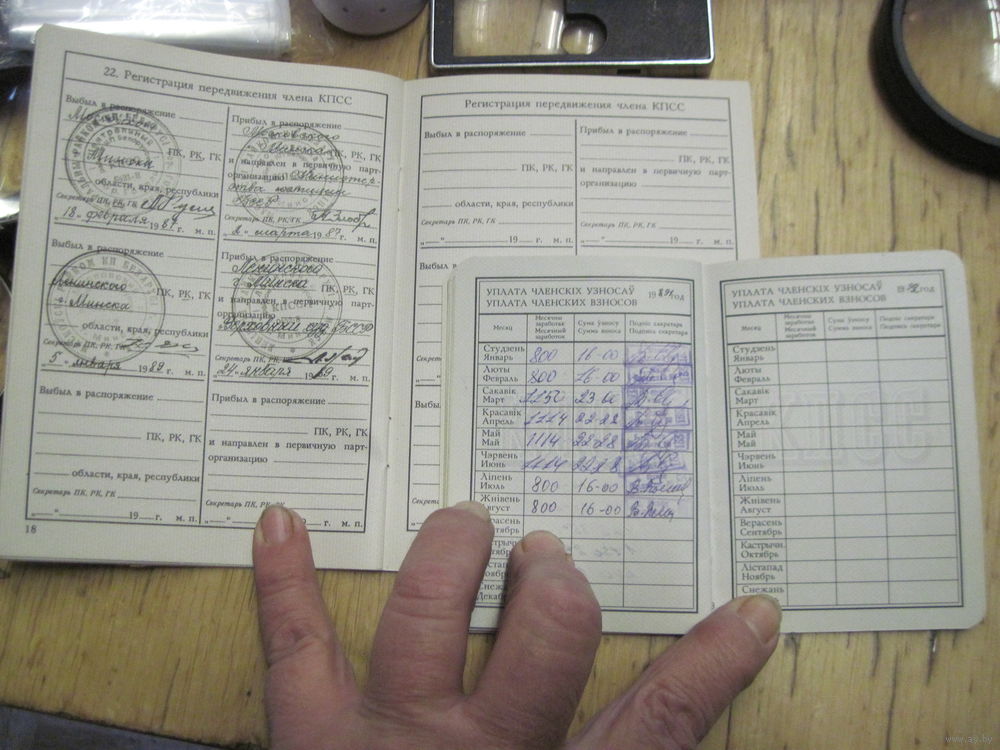 22. Регистрация передвижения члена КПСС
Выбыл в распоряжение
Минска
ПК, РК, ГК
области, края, республики
Секретарь ПК, РК, ГК
„18" февраля 1987 г. м. п.
Прибыл в распоряжение
Московского
г. Минска
ПК, РК, ГК
и направлен в первичную парт-
организацию Министер-
ства юстиции
БССР
Секретарь ПК, РК, ГК
„2" марта 1987 г. м. п.
Выбыл в распоряжение
Ленинского
ПК, РК, ГК
г. Минска
области, края, республики
Секретарь ПК, РК, ГК
„5" января 1989 г. м. п.
Ленинского
г. Минска
ПК, РК, ГК
и направлен в первичную парт-
организацию
Верховный суд БССР
Секретарь ПК, РК, ГК
„24" января 1989 г. м. п.
Выбыл в распоряжение
ПК, РК, ГК
области, края, республики
Секретарь ПК, РК, ГК
„ " 19 г. м. п.
Прибыл в распоряжение
ПК, РК, ГК
и направлен в первичную парт-
организацию
Секретарь ПК, РК, ГК
„ " 19 г. м. п.
18
Регистрация передвижения члена КПСС
Выбыл в распоряжение
ПК, РК, ГК
области, края, республики
Секретарь ПК, РК, ГК
„ " 19 г. м. п.
Прибыл в распоряжение
ПК, РК, ГК
и направлен в первичную парт-
организацию
Секретарь ПК, РК, ГК
„ " 19 г. м. п.
УПЛАТА ЧЛЕНСКІХ УЗНОСАЎ
УПЛАТА ЧЛЕНСКИХ ВЗНОСОВ
19 год
Месяц
Месячны заработак
Месячный заработок
Сума ўзносу
Сумма взноса
Подпіс сакратара
Подпись секретаря
Студзень
Январь 800 16-00
Люты
Февраль 800 16-00
Сакавік
Март 1150 23-00
Красавік
Апрель 1114 22-28
Май
Май 1114 22-28
Чэрвень
Июнь 1114 22-28
Ліпень
Июль 800 16-00
Жнівень
Август 800 16-00
УПЛАТА ЧЛЕНСКІХ УЗНОСАЎ
УПЛАТА ЧЛЕНСКИХ ВЗНОСОВ
19 год
Месяц
Месячны заработак
Месячный заработок
Сума ўзносу
Сумма взноса
Подпіс сакратара
Подпись секретаря
Студзень
Январь
Люты
Февраль
Сакавік
Март
Красавік
Апрель
Май
Май
Чэрвень
Июнь
Ліпень
Июль
Жнівень
Август
Верасень
Сентябрь
Кастрычн.
Октябрь
Лістапад
Ноябрь
Снежань
www.ay.by